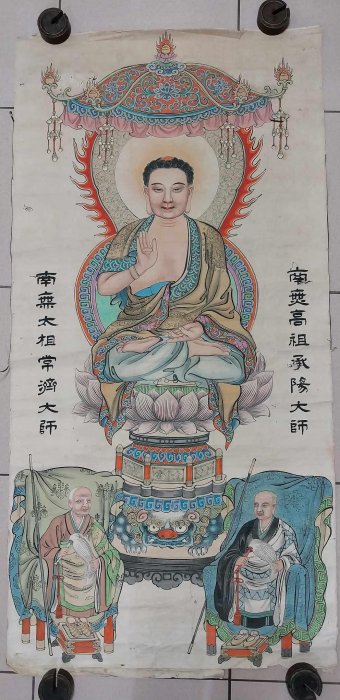 南無高祖承陽大師
南無太祖常濟大師